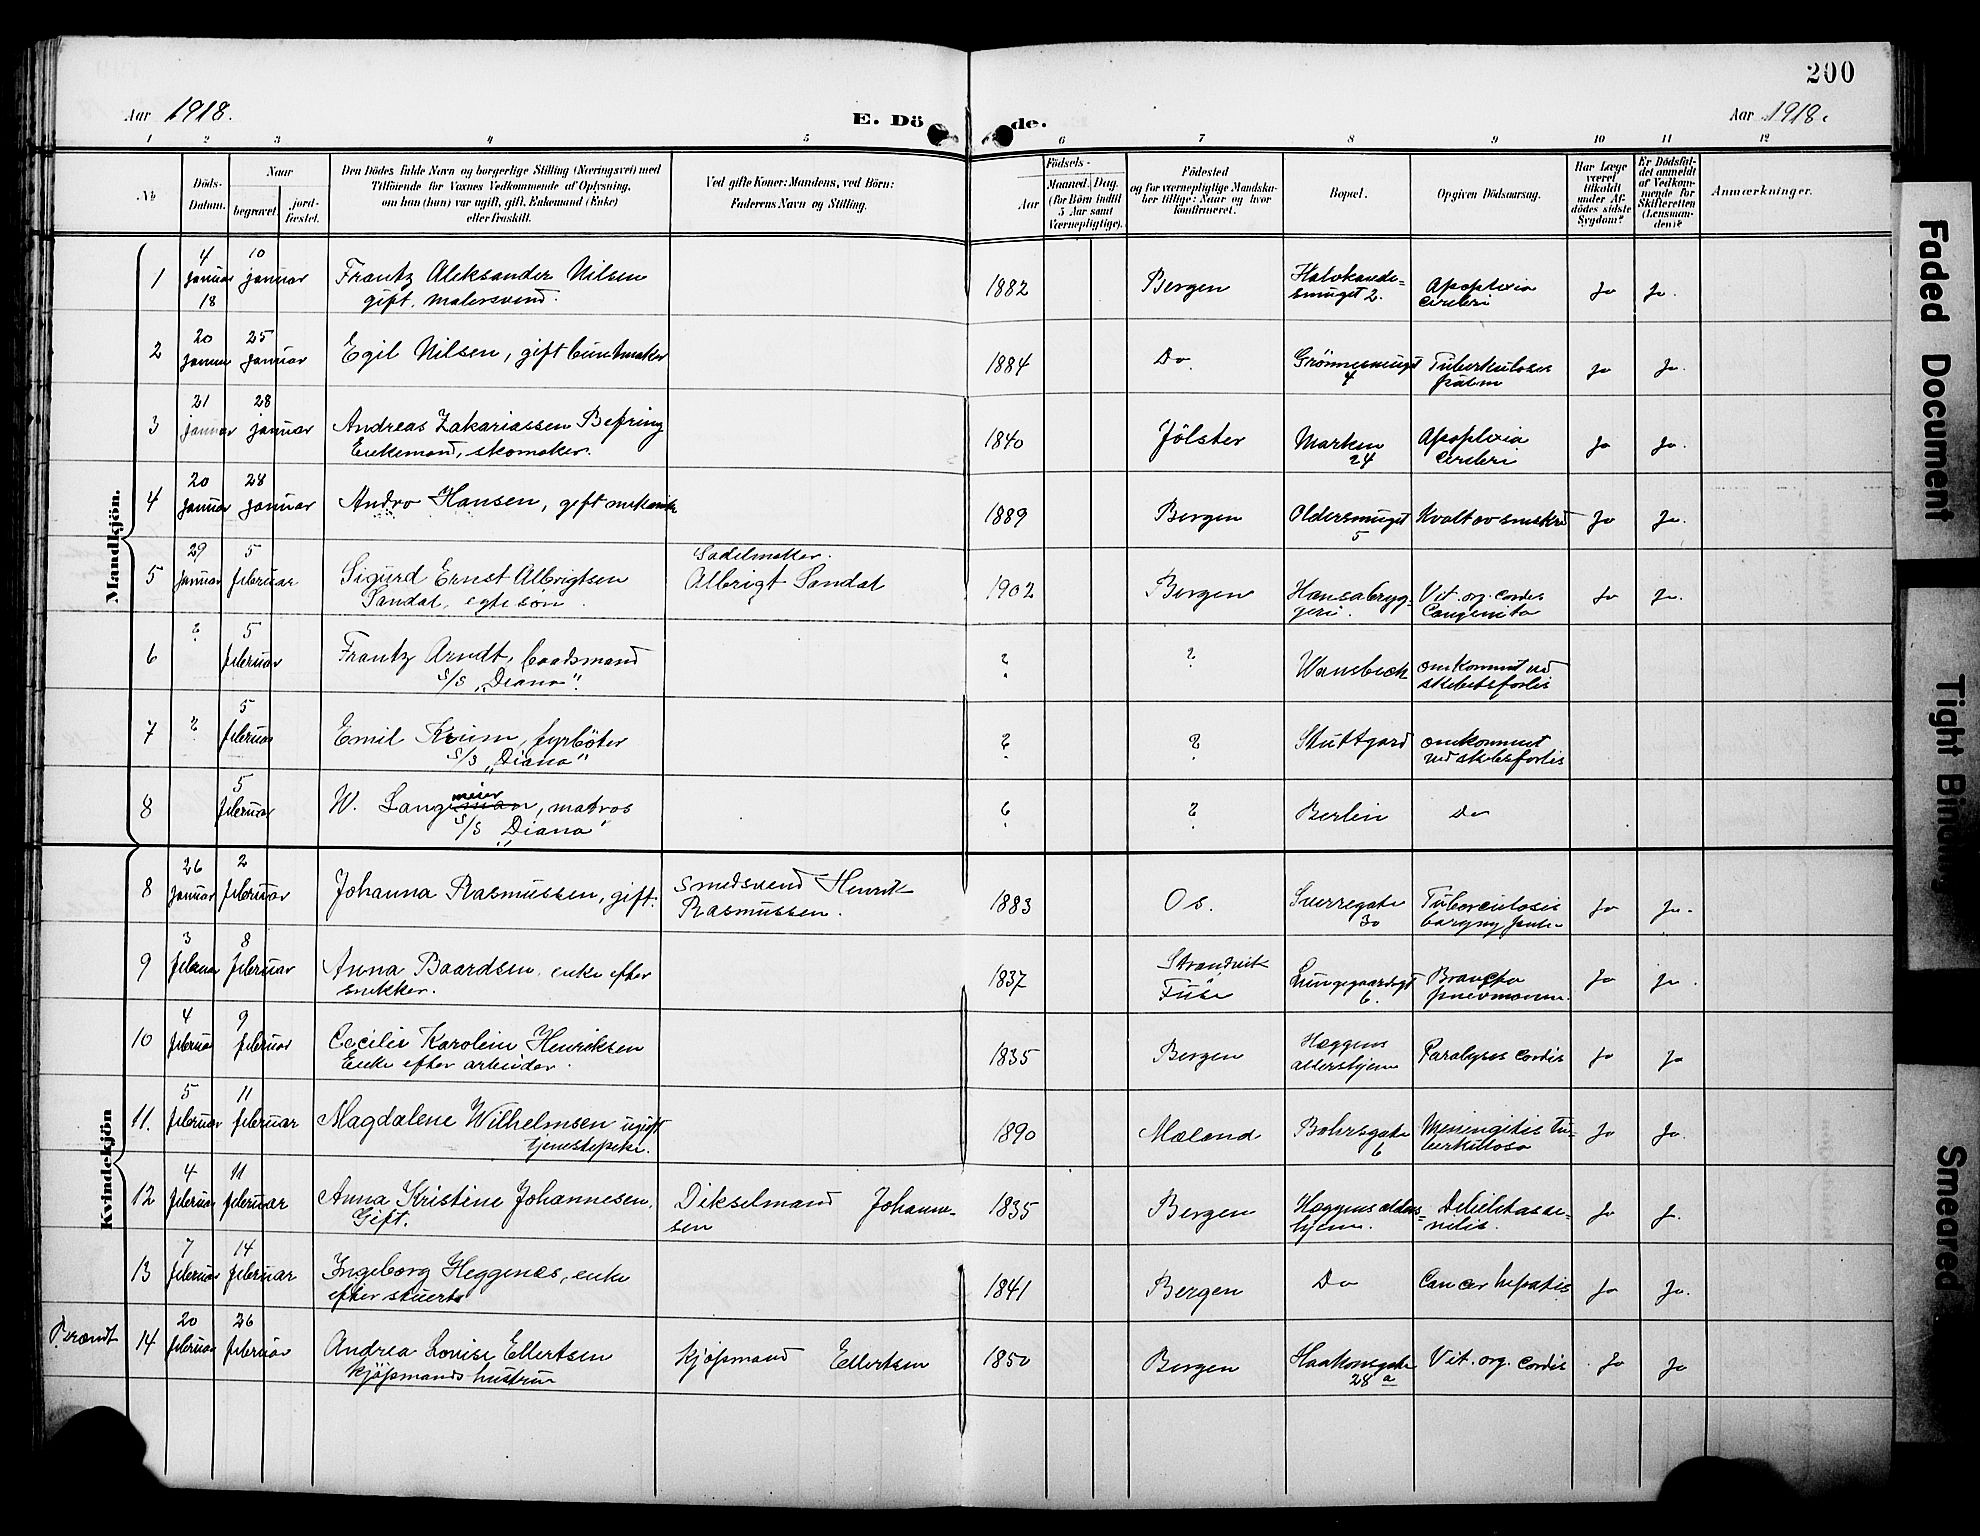 200
Aar 1918.
E. Dö de.
Aar 1918.
1 2 3 4 5 6 7 8 9 10 11 12
No
Döds-
Datum.
Naar
begravet.
jord-
fæstet.
Den Dödes fulde Navn og borgerlige Stilling (Næringsvei) med
Tilföiende for Voxnes Vedkommende af Oplysning,
om han (hun) var ugift, gift, Enkemand (Enke)
eller fraskilt.
Ved gifte Koner: Mandens, ved Börn:
Faderens Navn og Stilling.
Födsels-
Aar
Maaned. Dag.
(for Börn indtil
5 Aar samt
Værnepligtige).
Födested
og for værnepligtige Mandska-
ber tillige: Naar og hvor
konfirmeret.
Bopæl.
Opgiven Dödsaarsag.
Har Læge
været
tilkaldt
under Af-
dödes sidste
Sygdom?
Er Dödsfal-
det anmeldt
af Vedkom-
mende for
Skifteretten
(Lensman-
den)?
Anmærkninger.
Mandkjön.
1 4 januar 18 10 januar Frantz Aleksander Nilsen
gift, malersvend. 1882 Bergen Halvkande-
smuget 2. Apoplexia
cerebri Ja Ja.
2 20 januar 25 januar Egil Nilsen, gift buntmaker 1884 Do. Grönnesmuget
4 Tuberkulosis
pulm Ja Ja.
3 21 januar 28 januar Andreas Zakariassen Befring
Enkemand, skomaker. 1840 Jölster Marken
24 Apoplexia
cerebri Ja Ja.
4 20 januar 28 januar Andro Hansen, gift mekanik 1889 Bergen Oldersmuget
5 Kvalt av sneskred Ja Ja.
5 29 januar 5 februar Sigurd Ernst Albrigtsen
Sandal, egte sön. Sadelmaker.
Albrigt Sandal 1902 Bergen Hansabryg-
geri. Vit. org. cordis
Congenita Ja Ja.
6 ? 5 februar Frantz Arndt, baadsmand
S/S „Diana". ? ? Wansbeck omkommet ved
skibsforlis
7 ? 5 februar Emil Krum, fyrböter
S/S „Diana" ? ? Stuttgard omkommet
ved skibsforlis
8 5 februar W. Langemeier, matros
S/S „Diana" ? ? Berlin Do
Kvindekjön
8 26 januar 2 februar Johanna Rasmussen, gift. Smedsvend Henrik
Rasmussen. 1883 Os. Sverregate
30 Tuberculosis
Ja Ja.
9 3 februar 8 februar Anna Baardsen, enke efter
snekker. 1837 Strandvik
Fuse Lungegaardsgt
6. Broncho
pneumonia. Ja Ja.
10 4 februar 9 februar Cecilie Karoline Henriksen
Enke efter arbeider. 1835 Bergen Hæggens
aldershjem Paralysis cordis Ja Ja
11. 5 februar 11 februar Magdalene Wilhelmsen ugift
tjenestepike. 1890 Maland Bohrsgate
6 Meningitis tu-
berkulosa Ja Ja.
12 4 februar 11 februar Anna Kristine Johannesen,
Gift. Dikselmand Johanne-
sen 1835 Bergen Hæggens alders-
hjem. Debilitas se-
nilis. Ja Ja.
13 7 februar 14 februar Ingeborg Heggenes, enke
efter stuert 1841 Bergen Do Cancer hepatis Ja Ja.
Brandt 14 20 februar 26 februar Andrea Lovise Ellertsen
kjöpmands hustru Kjöpmand Ellertsen 1850 Bergen Haakonsgate
28 a Vit. org. cordis Ja Ja
Faded Document
Tight Binding
Smeared